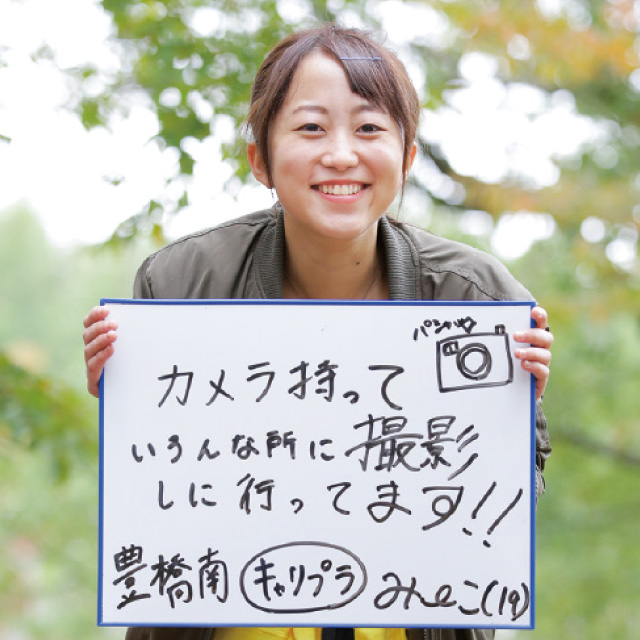 パシャッ
カメラ持って
いろんな所に撮影
しに行ってます!!
豊橋南 キャリプラ みんこ(19)